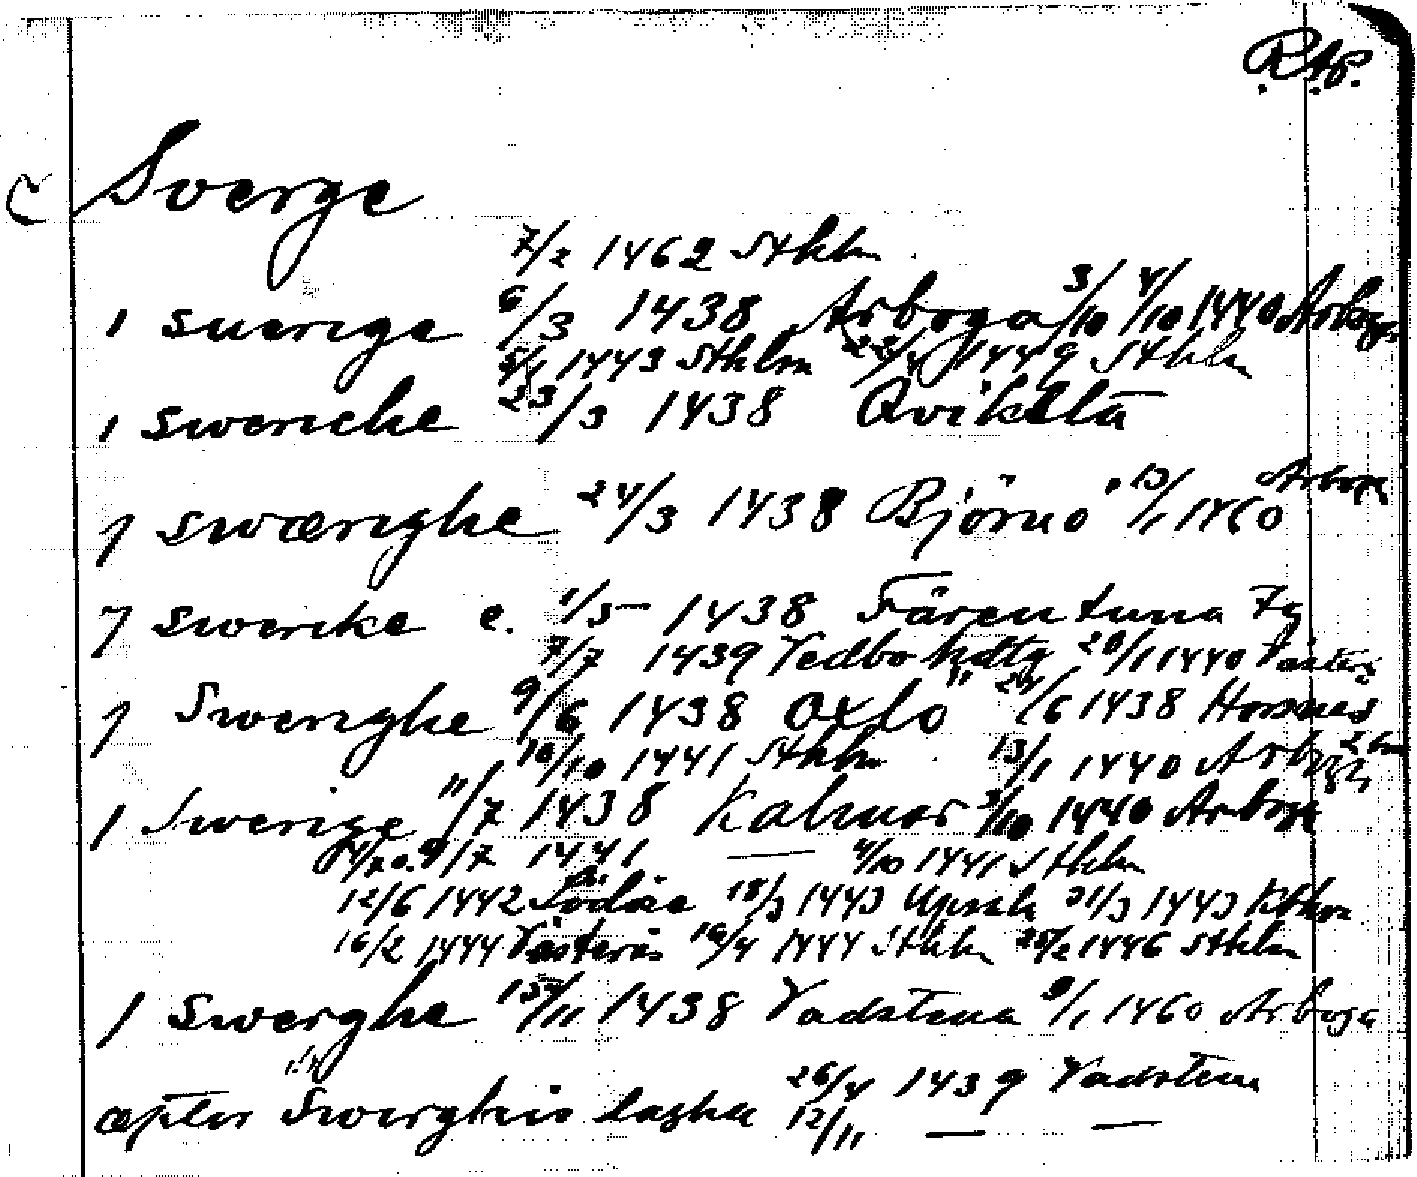 R.A.P.
Sverge
7/2 1462 Sthlm
1 suerige 6/3 1438 Arboga 3/10 4/10 1440 Arboga
1443 Sthlm 1449 Sthlm
1 swericke 23/3 1438 Qvikstad
1 swærighe 24/3 1438 Björnö 13/1 1460 Arboga
1 swerike e. 1/5 1438 Färentuna
7/7 1439 Vedbo 20/1 1440 Västerås
1 Swerighe 9/6 1438 Oxlo 24/6 1438
10/10 1441 Sthlm 13/1 1440 Arboga
1 Swerige 11/7 1438 Kalmar 3/10 1440 Arboga
9/7 1441 — 4/10 1441 Sthlm
12/6 1442 18/3 1443 Upsala 31/3 1443
16/2 1444 Västerås 16/4 1444 Sthlm 25/2 1446 Sthlm
1 Swerghe 1438 Vadstena 9/1 1460 Arboga
æpter Swerghis laghu 26/4 1439 Vadstena
12/11 — —